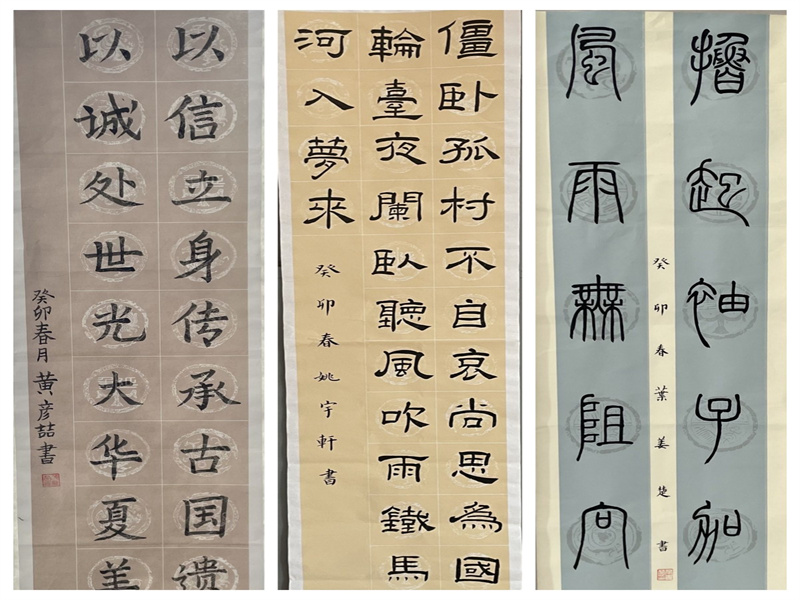 以信立身传承古国遗
以诚处世光大华夏美
癸卯春月黄彦喆書
僵卧孤村不自哀尚思為國
輪臺夜闌臥聽風吹雨鐵馬
河入夢來
癸卯春姚宇軒書
擼起袖子加
風雨無阻向
癸卯春葉姜楚書